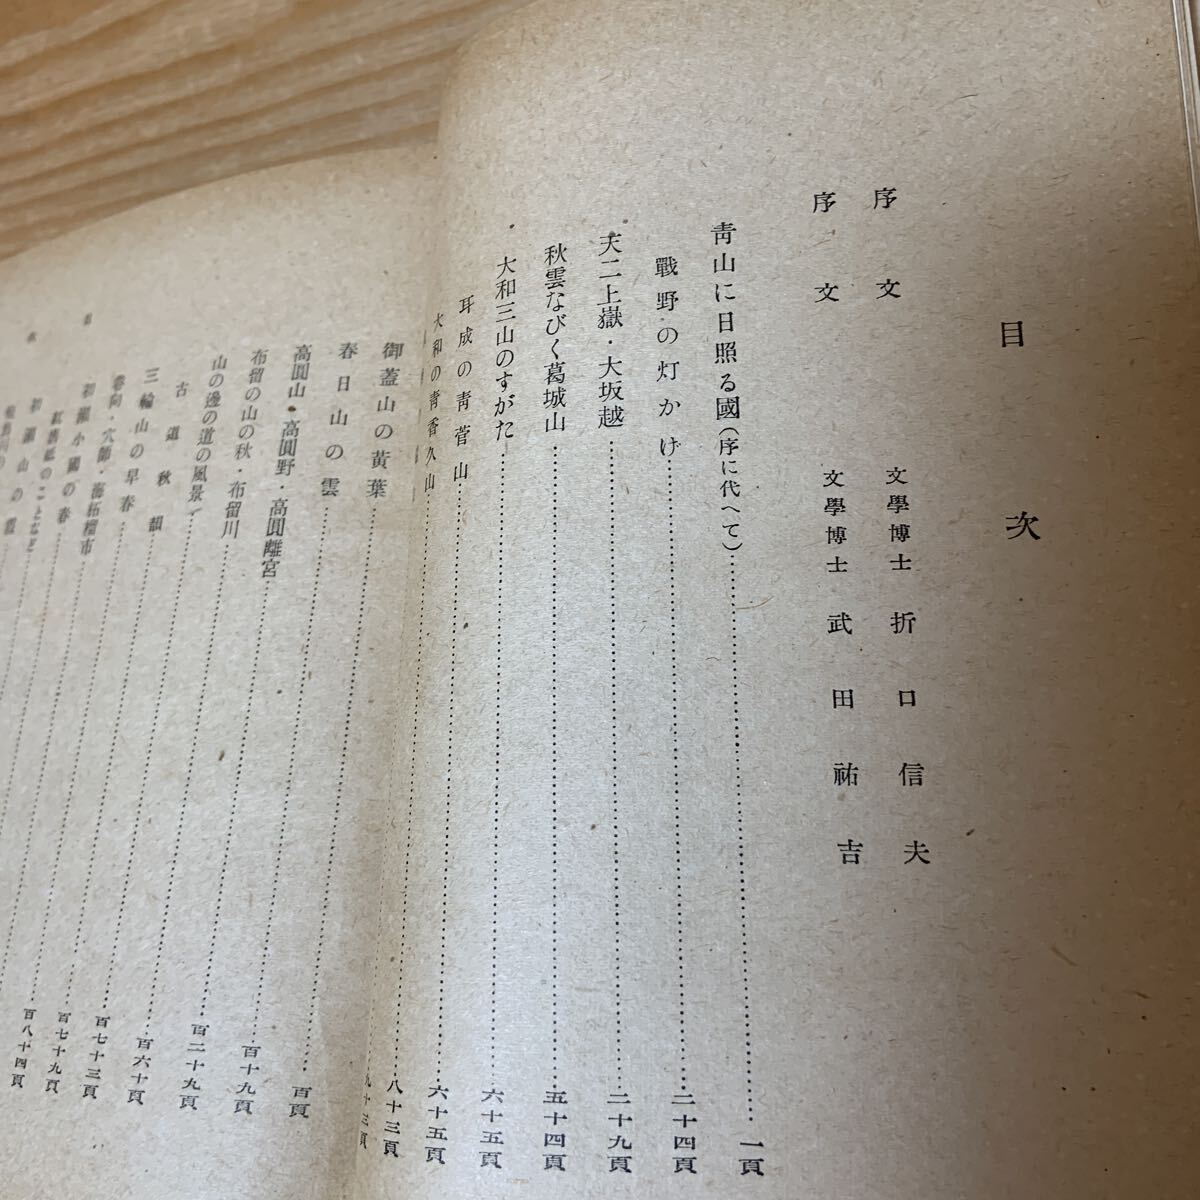 目次
序文 文學博士 折口信夫
序文 文學博士 武田祐吉
靑山に日照る國(序に代へて)…………一頁
戰野の灯かげ…………二十四頁
天二上嶽・大坂越…………二十九頁
秋雲なびく葛城山…………五十四頁
大和三山のすがた…………六十五頁
耳成の靑菅山…………六十五頁
大和の靑香久山…………八十三頁
御蓋山の黃葉…………九十三頁
春日山の雲…………百頁
高圓山・高圓野・高圓離宮…………百十九頁
布留の山の秋・布留川…………百二十九頁
山の邊の道の風景
古道秋韻…………百六十頁
三輪山の早春…………百七十三頁
卷向・穴師・海柘榴市…………百七十九頁
初瀨小國の春…………百八十四頁
紅薔薇のことなど
初瀨山の